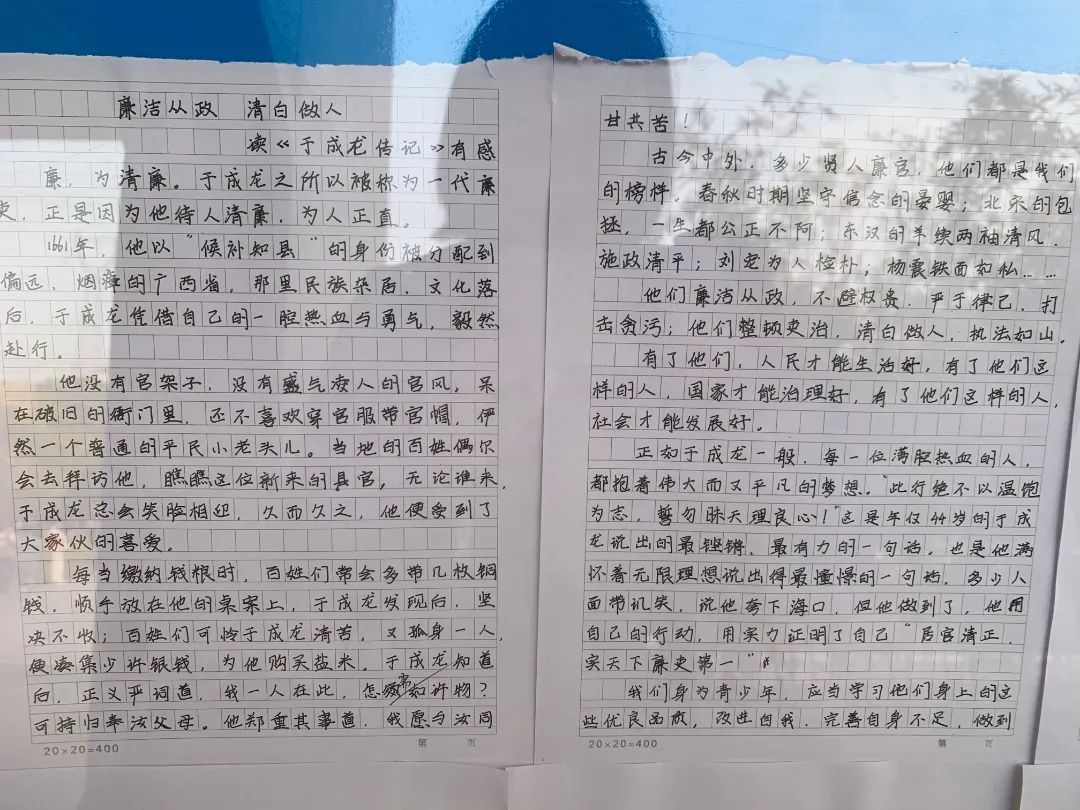 廉洁从政 清白做人
读《于成龙传记》有感
廉，为清廉。于成龙之所以被称为一代廉
吏，正是因为他待人清廉，为人正直。
1661年，他以“候补知县”的身份被分配到
偏远、烟瘴的广西省，那里民族杂居、文化落
后，于成龙凭借自己的一腔热血与勇气，毅然
赴行。
他没有官架子，没有盛气凌人的官风，呆
在破旧的衙门里，还不喜欢穿官服带官帽，伊
然一个普通的平民小老头儿。当地的百姓偶尔
会去拜访他，瞧瞧这位新来的县官。无论谁来，
于成龙总会笑脸相迎，久而久之，他便受到了
大家伙的喜爱。
每当缴纳钱粮时，百姓们常会多带几枚铜
钱，顺手放在他的桌案上，于成龙发现后，坚
决不收；百姓们可怜于成龙清苦，又孤身一人，
便凑集少许银钱，为他购买盐米。于成龙知道
后，正义严词道，我一人在此，怎需如许物？
可持归奉汝父母。他郑重其事道，我愿与汝同
20×20=400
第 页
甘共苦！
古今中外，多少贤人廉官，他们都是我们
的榜样。春秋时期坚守信念的晏婴；北宋的包
拯，一生都公正不阿；东汉的羊续两袖清风，
施政清平；刘宠为人俭朴；杨震铁面如私……
他们廉洁从政，不避权贵，严于律己，打
击贪污；他们整顿吏治，清白做人，执法如山。
有了他们，人民才能生活好，有了他们这
样的人，国家才能治理好，有了他们这样的人，
社会才能发展好。
正如于成龙一般，每一位满腔热血的人，
都抱着伟大而又平凡的梦想。“此行绝不以温饱
为志，誓勿昧天理良心！”这是年仅44岁的于成
龙说出的最铿锵、最有力的一句话，也是他满
怀着无限理想说出得最憧憬的一句话，多少人
面带讥笑，说他夸下海口，但他做到了，他用
自己的行动，用实力证明了自己“居官清正，
实天下廉吏第一”。
我们身为青少年，应当学习他们身上的这
些优良品质，改进自我，完善自身不足，做到
20×20=400
第 页